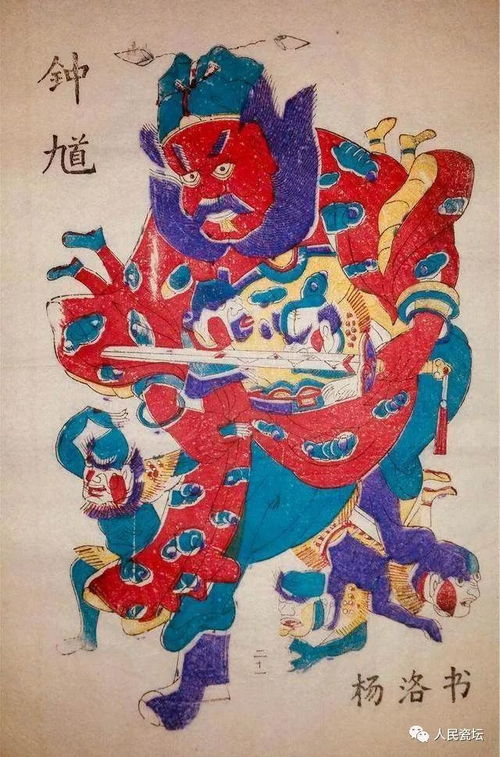 钟
馗
二十一
杨洛书
人民瓷坛